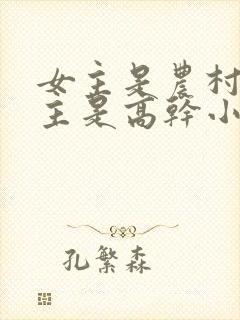 女主是農村
主是高幹小
孔繁森